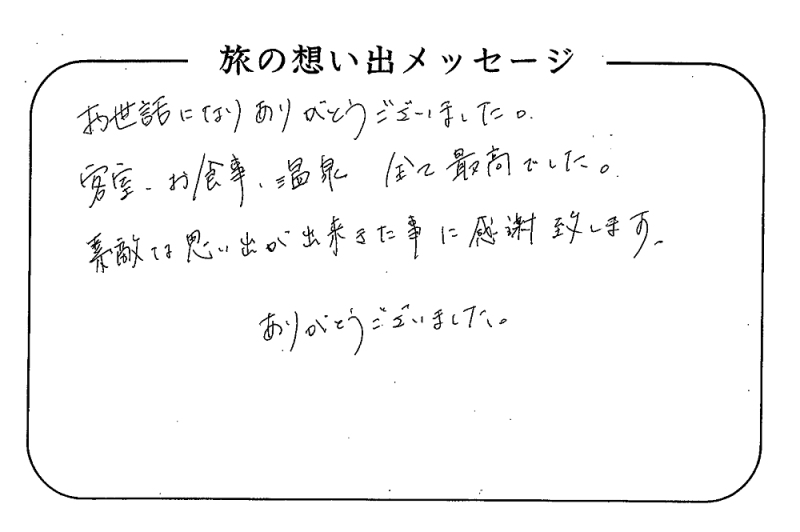 旅の想い出メッセージ
お世話になりありがとうございました。
客室、お食事、温泉 全て最高でした。
素敵な思い出が出来きた事に感謝致します。
ありがとうございました。